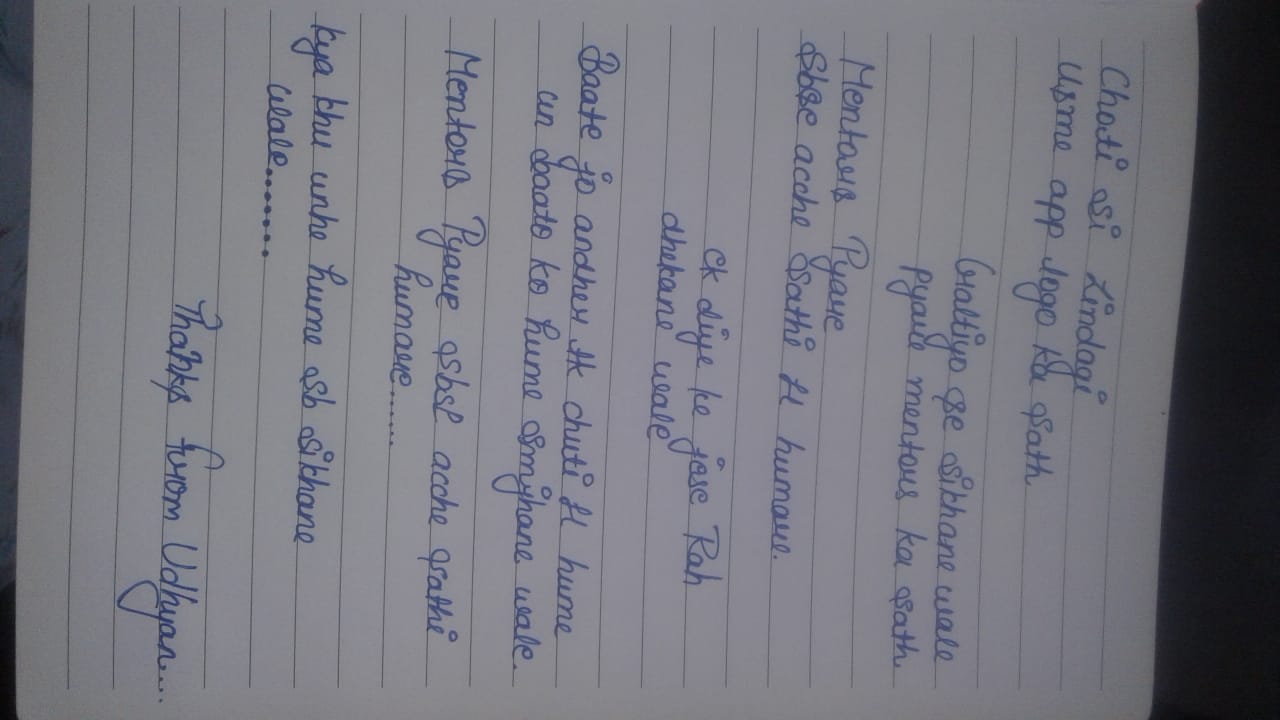 Choti si Zindagi
Usme app logo ka sath
Galtiyo se sikhane wale
pyare mentors ka sath
Mentors Pyare
Sbse acche sathi H humare.
Ek diye ke jese Rah
dhekane wale
Baate jo andher tk chuti H hume
un baato ko hume smjhane wale.
Mentors Pyare sbse acche sathi
humare......
kya bhu unhe hume sb sikhane
wale.......
Thanks from Udhyan....